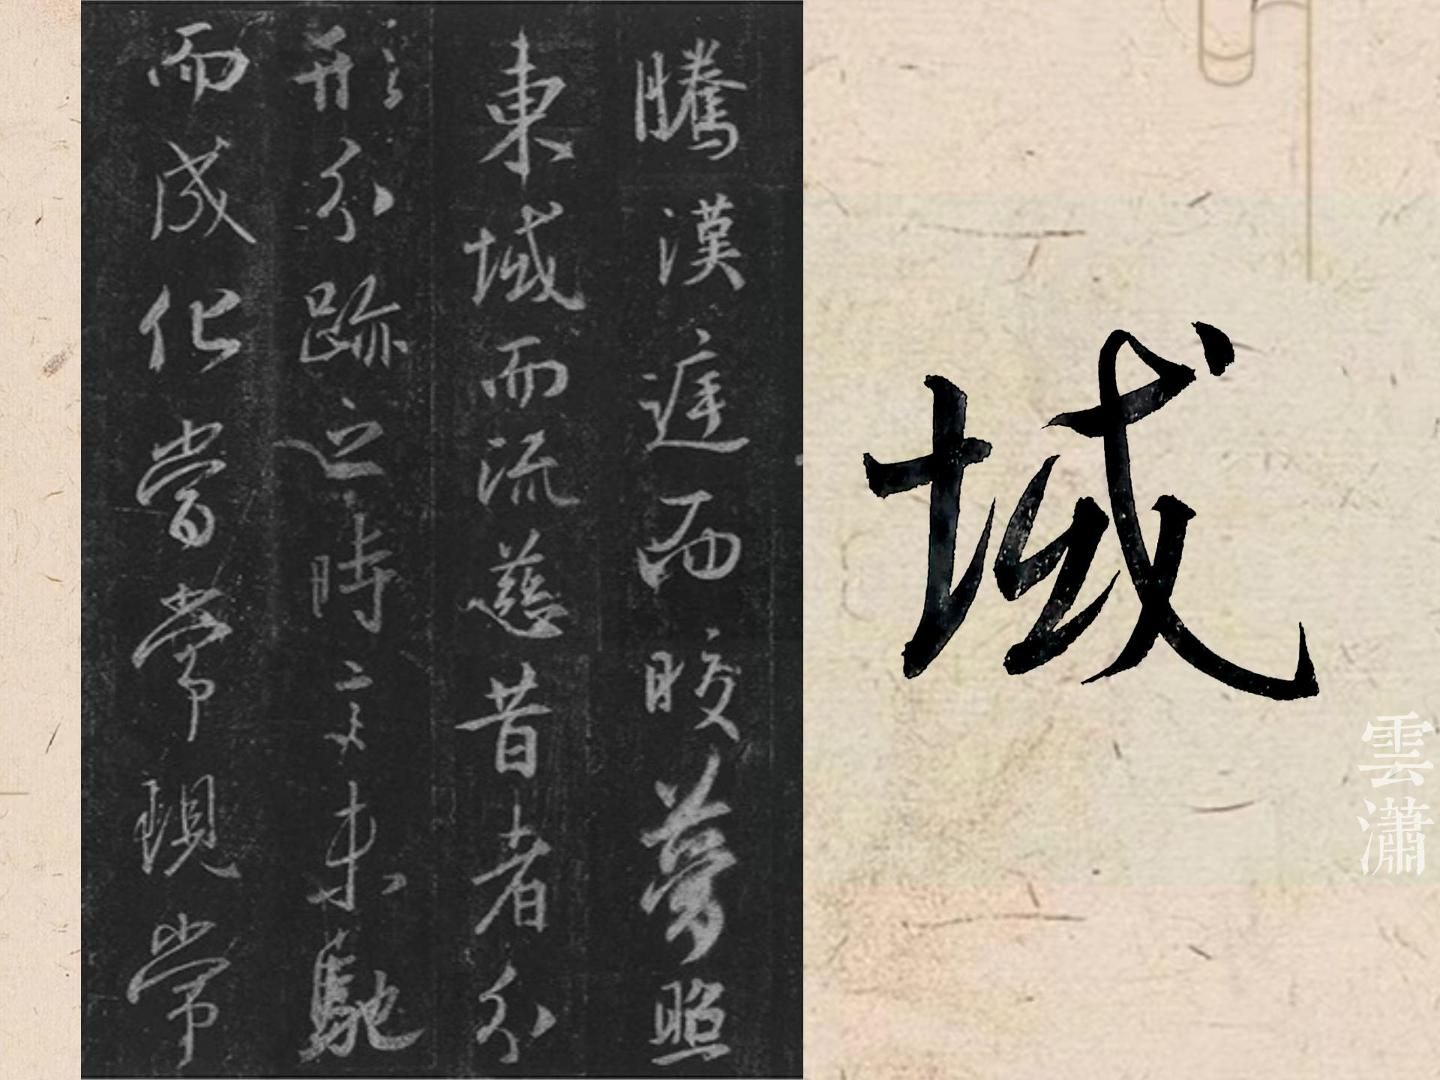 騰漢庭而皎夢照
東域而流慈昔者分
形分跡之時言未馳
而成化當常常現常
域
雲瀟